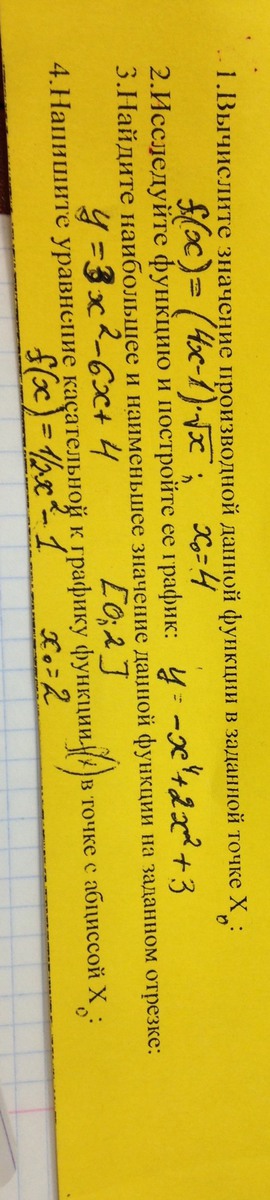 1.Вычислите значение производной данной функции в заданной точке X₀:
f(x) = (4x-1)·√x ; x₀=4
2.Исследуйте функцию и постройте ее график: y = -x⁴+2x²+3
3.Найдите наибольшее и наименьшее значение данной функции на заданном отрезке:
y = 3x²-6x+4 [0,2]
4.Напишите уравнение касательной к графику функции f(x) в точке с абциссой X₀:
f(x) = 1/2x²-1 x₀=2